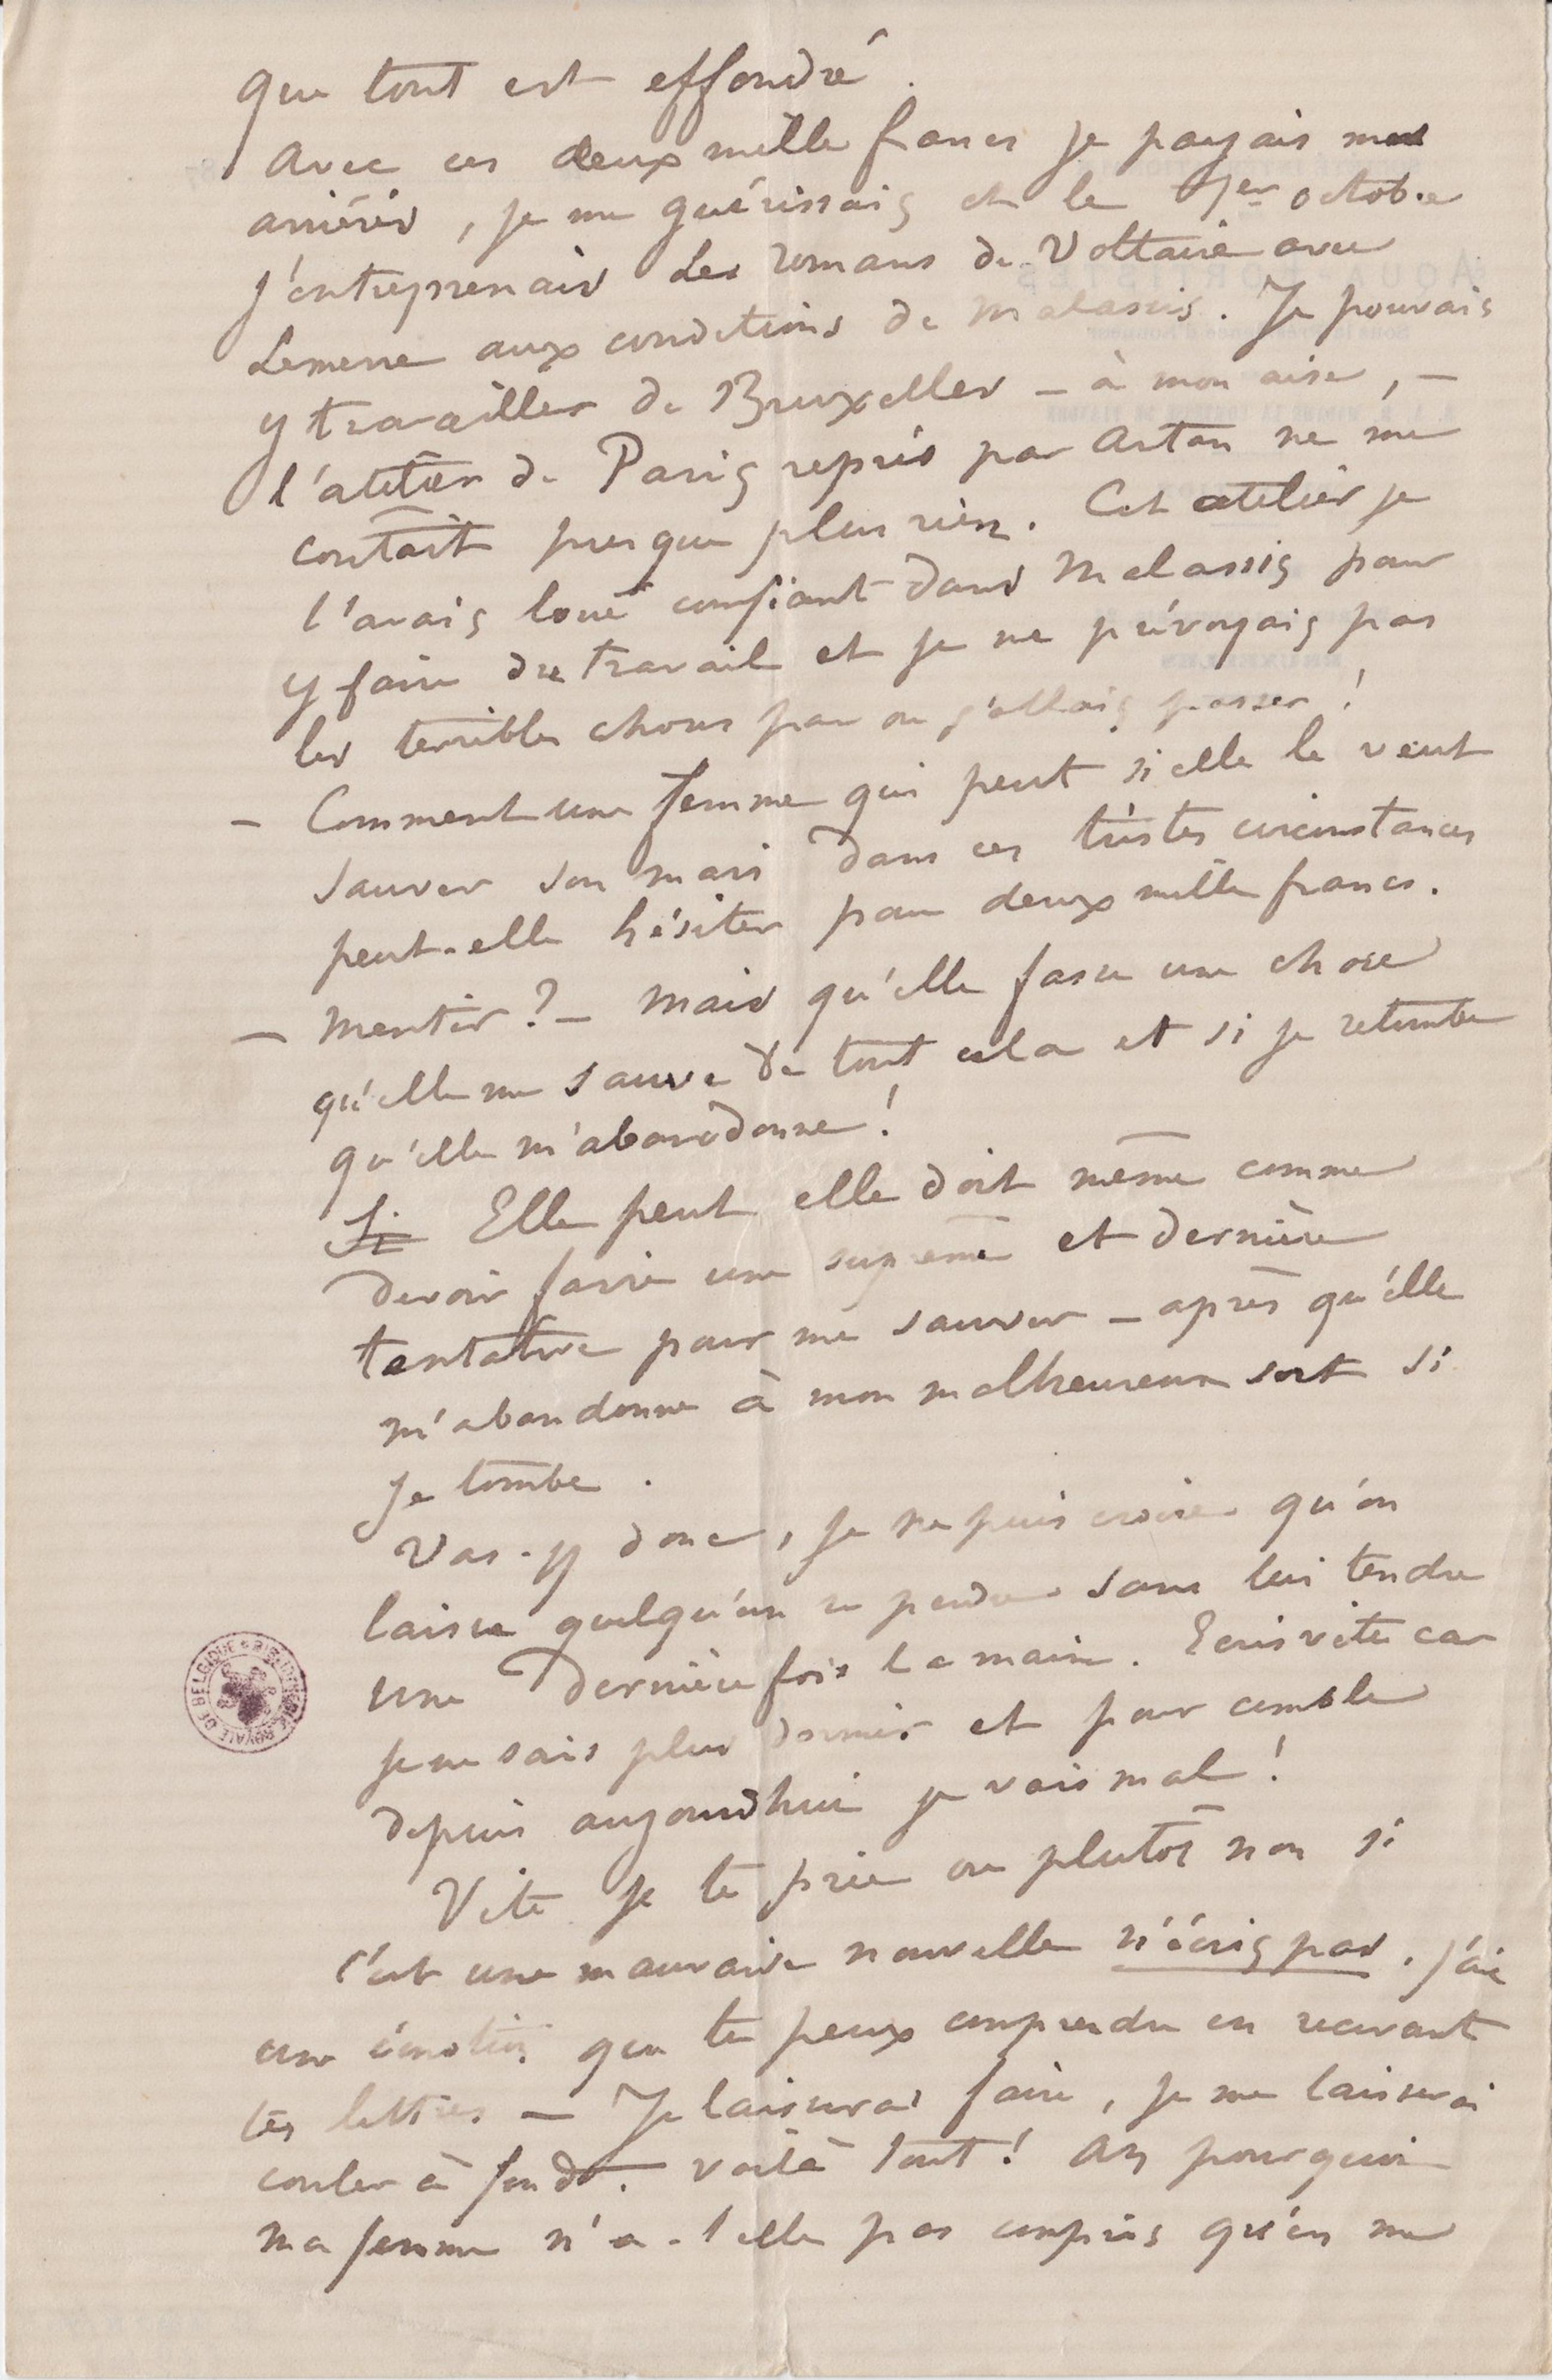 que tout est effondré.
Avec ces deux mille francs je payais mes
arriérés, je me guérissais et le 1er octobre
j'entreprenais les romans de Voltaire avec
Lemerre aux conditions de Malassis. Je pouvais
y travailler de Bruxelles – à mon aise, –
l'atelier de Paris repris par Artan ne me
coutait presque plus rien. Cet atelier je
l'avais loué confiant dans Malassis pour
y faire du travail et je ne prévoyais pas
les terribles choses par ou j'allais passer !
– Comment une femme qui peut si elle le veut
sauver son mari dans ces tristes circonstances
peut-elle hésiter pour deux mille francs.
– Mentir ? – Mais qu'elle fasse une chose
qu'elle me sauve de tout cela et si je retombe
qu'elle m'abandonne !
Si Elle peut elle doit même comme
devoir faire une suprême et dernière
tentative pour me sauver – après qu'elle
m'abandonne à mon malheureux sort si
je tombe.
Vas-y donc, je ne puis croire qu'on
laisse quelqu'un se perdre sans lui tendre
une dernière fois la main. Ecris vite car
je ne sais plus dormir et pour comble
depuis aujourdhui je vais mal !
Vite je te prie ou plutôt non si
c'est une mauvaise nouvelle n'écris pas. J'ai
une émotion que tu peux comprendre en recevant
tes lettres – Je laisserai faire, je me laisserai
couler à fond. voilà tout ! Ah pourquoi
ma femme n'a-t elle pas compris qu'en me
BIBLIOTHEQUE ROYALE DE BELGIQUE